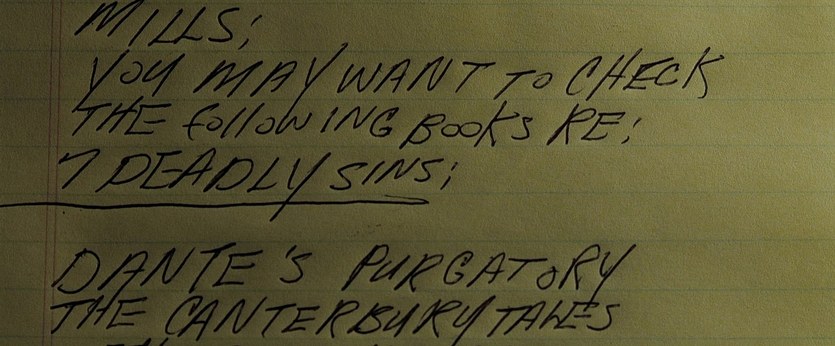 MILLS;
YOU MAY WANT TO CHECK
THE following BOOKS RE:
7 DEADLY SINS;
DANTE'S PURGATORY
THE CANTERBURY TALES